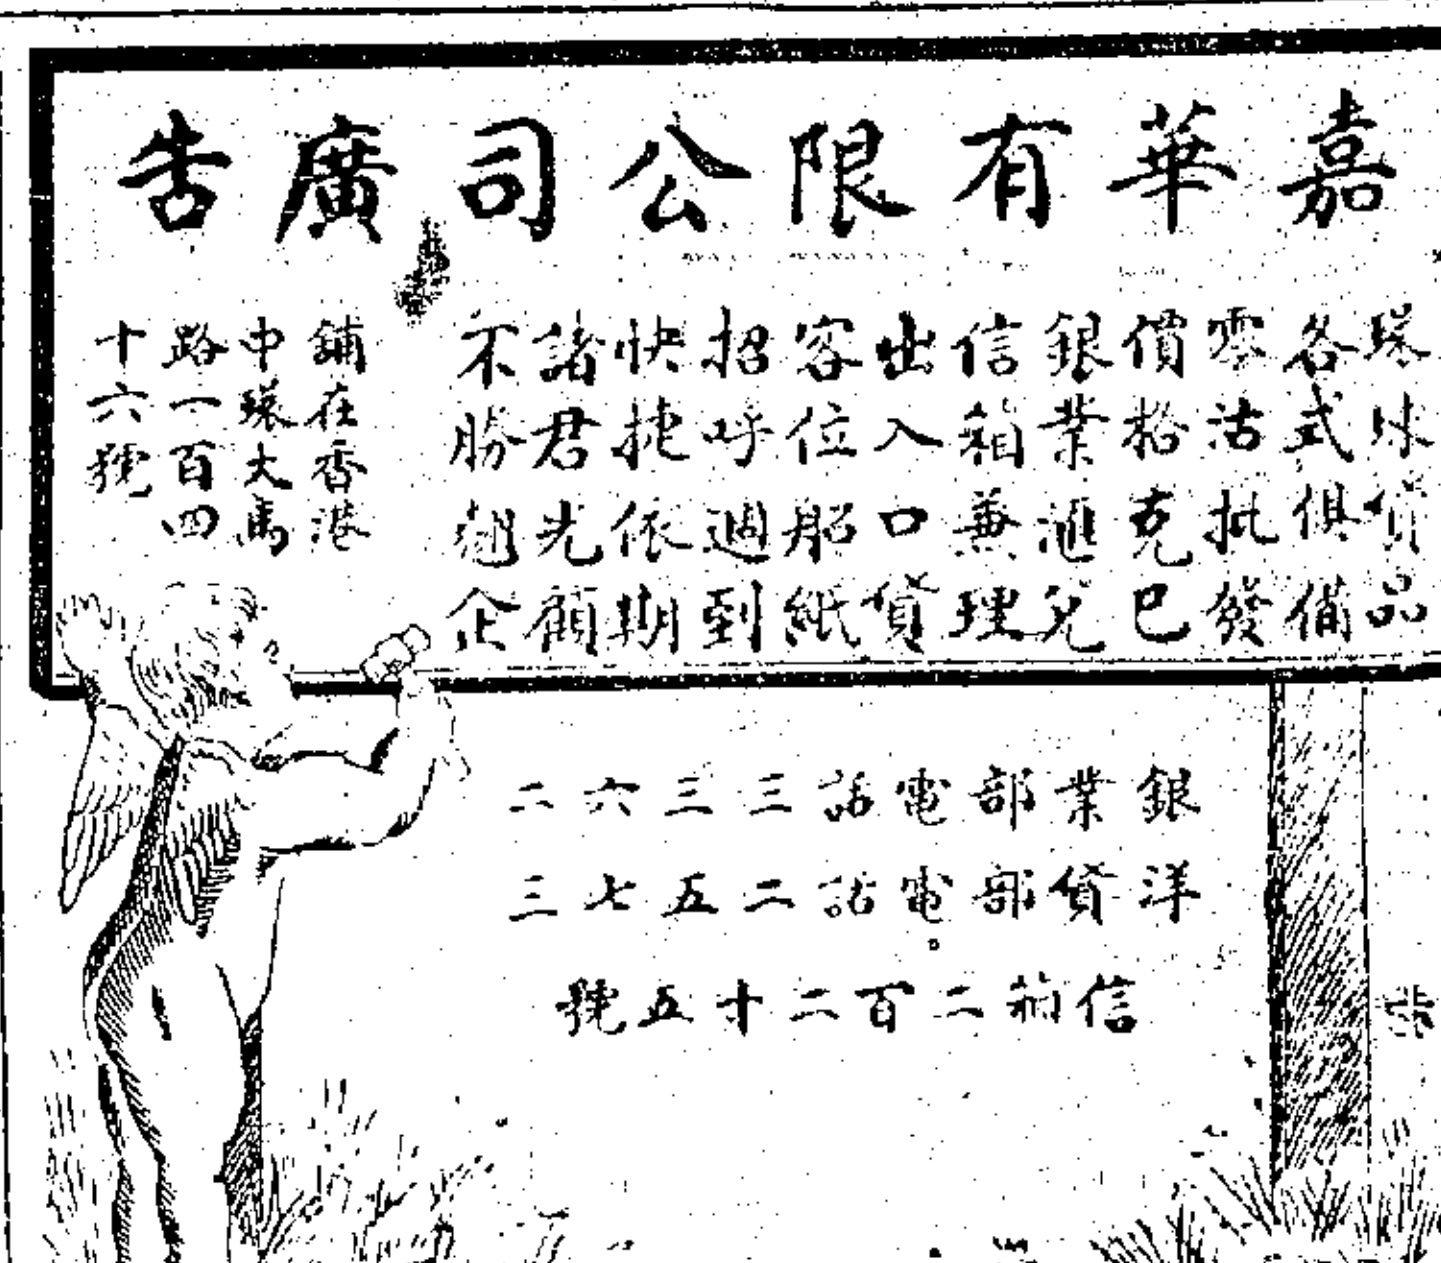 嘉華有限公司廣告
環球貨品
各式俱備
零沽批發
價格克巳
銀業滙兌
信箱兼理
出入口貨
客位船紙
招呼週到
快捷依期
諸君光顧
不勝翹企
鋪在香港
中環大馬
路一百四
十六號
銀業部電話三三六二
洋貨部電話二五七三
信箱二百二十五號